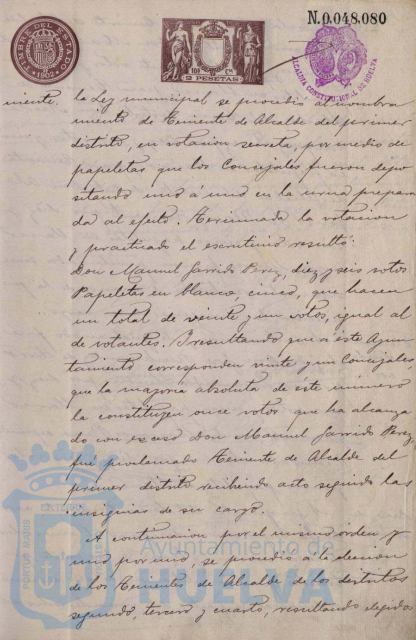 TIMBRE DEL ESTADO
1902
2 PESETAS
N.0.048.080
ALCALDIA CONSTITUCIONAL DE HUELVA
miento. la Ley municipal se procedió al nombra
miento de Teniente de Alcalde del perimer
distrito, en votacion secreta, por medio de
papeletas que los Concejales fueron depo
sitando uno á uno en la urna prepara
da al efecto. Terminada la votacion
y practicado el escrutinio resultó:
Don Manuel Garrido Perez, diez y seis votos
Papeletas en blanco, cinco, que hacen
un total de veinte y un votos, igual al
de votantes. Y resultando que a este Ayun
tamiento corresponden veinte y un Concejales,
que la mayoria absoluta de este numero
la constituyen once votos que ha alcanza
do con exceso Don Manuel Garrido Perez,
fué proclamado Teniente de Alcalde del
primer distrito recibiendo acto seguido las
insignias de su cargo.
A continuacion por el mismo orden y
uno por uno, se procedió a la eleccion
de los Teniente de Alcalde de los distritos
segundo, tercero y cuarto, resultando elegidos
PORTUS MARIS
Ayuntamiento de
HUELVA